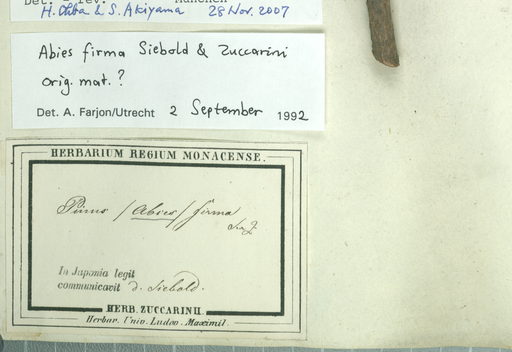 H. Ohba & S. Akiyama 28 Nov. 2007
Abies firma Siebold & Zuccarini
orig. mat. ?
Det. A. Farjon/Utrecht 2 September 1992
HERBARIUM REGIUM MONACENSE.
Pinus / Abies / firma
S&Z
In Japonia legit
communicavit d. Siebold.
HERB. ZUCCARINII.
Herbar. Univ. Ludov. Maximil.